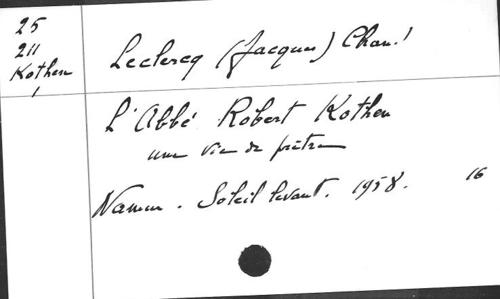 25
211
Kothen
Leclercq (Jacques) Chan.!
L'Abbé Robert Kothen
une vie de prêtre
Namur. Soleil levant. 1958.
16